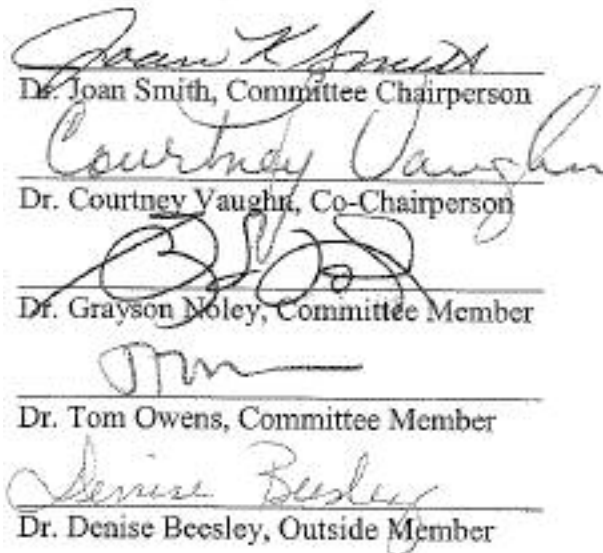 Joan K Smith
Dr. Joan Smith, Committee Chairperson
Courtney Vaughn
Dr. Courtney Vaughn, Co-Chairperson
Dr. Grayson Noley, Committee Member
Dr. Tom Owens, Committee Member
Denise Beesley
Dr. Denise Beesley, Outside Member